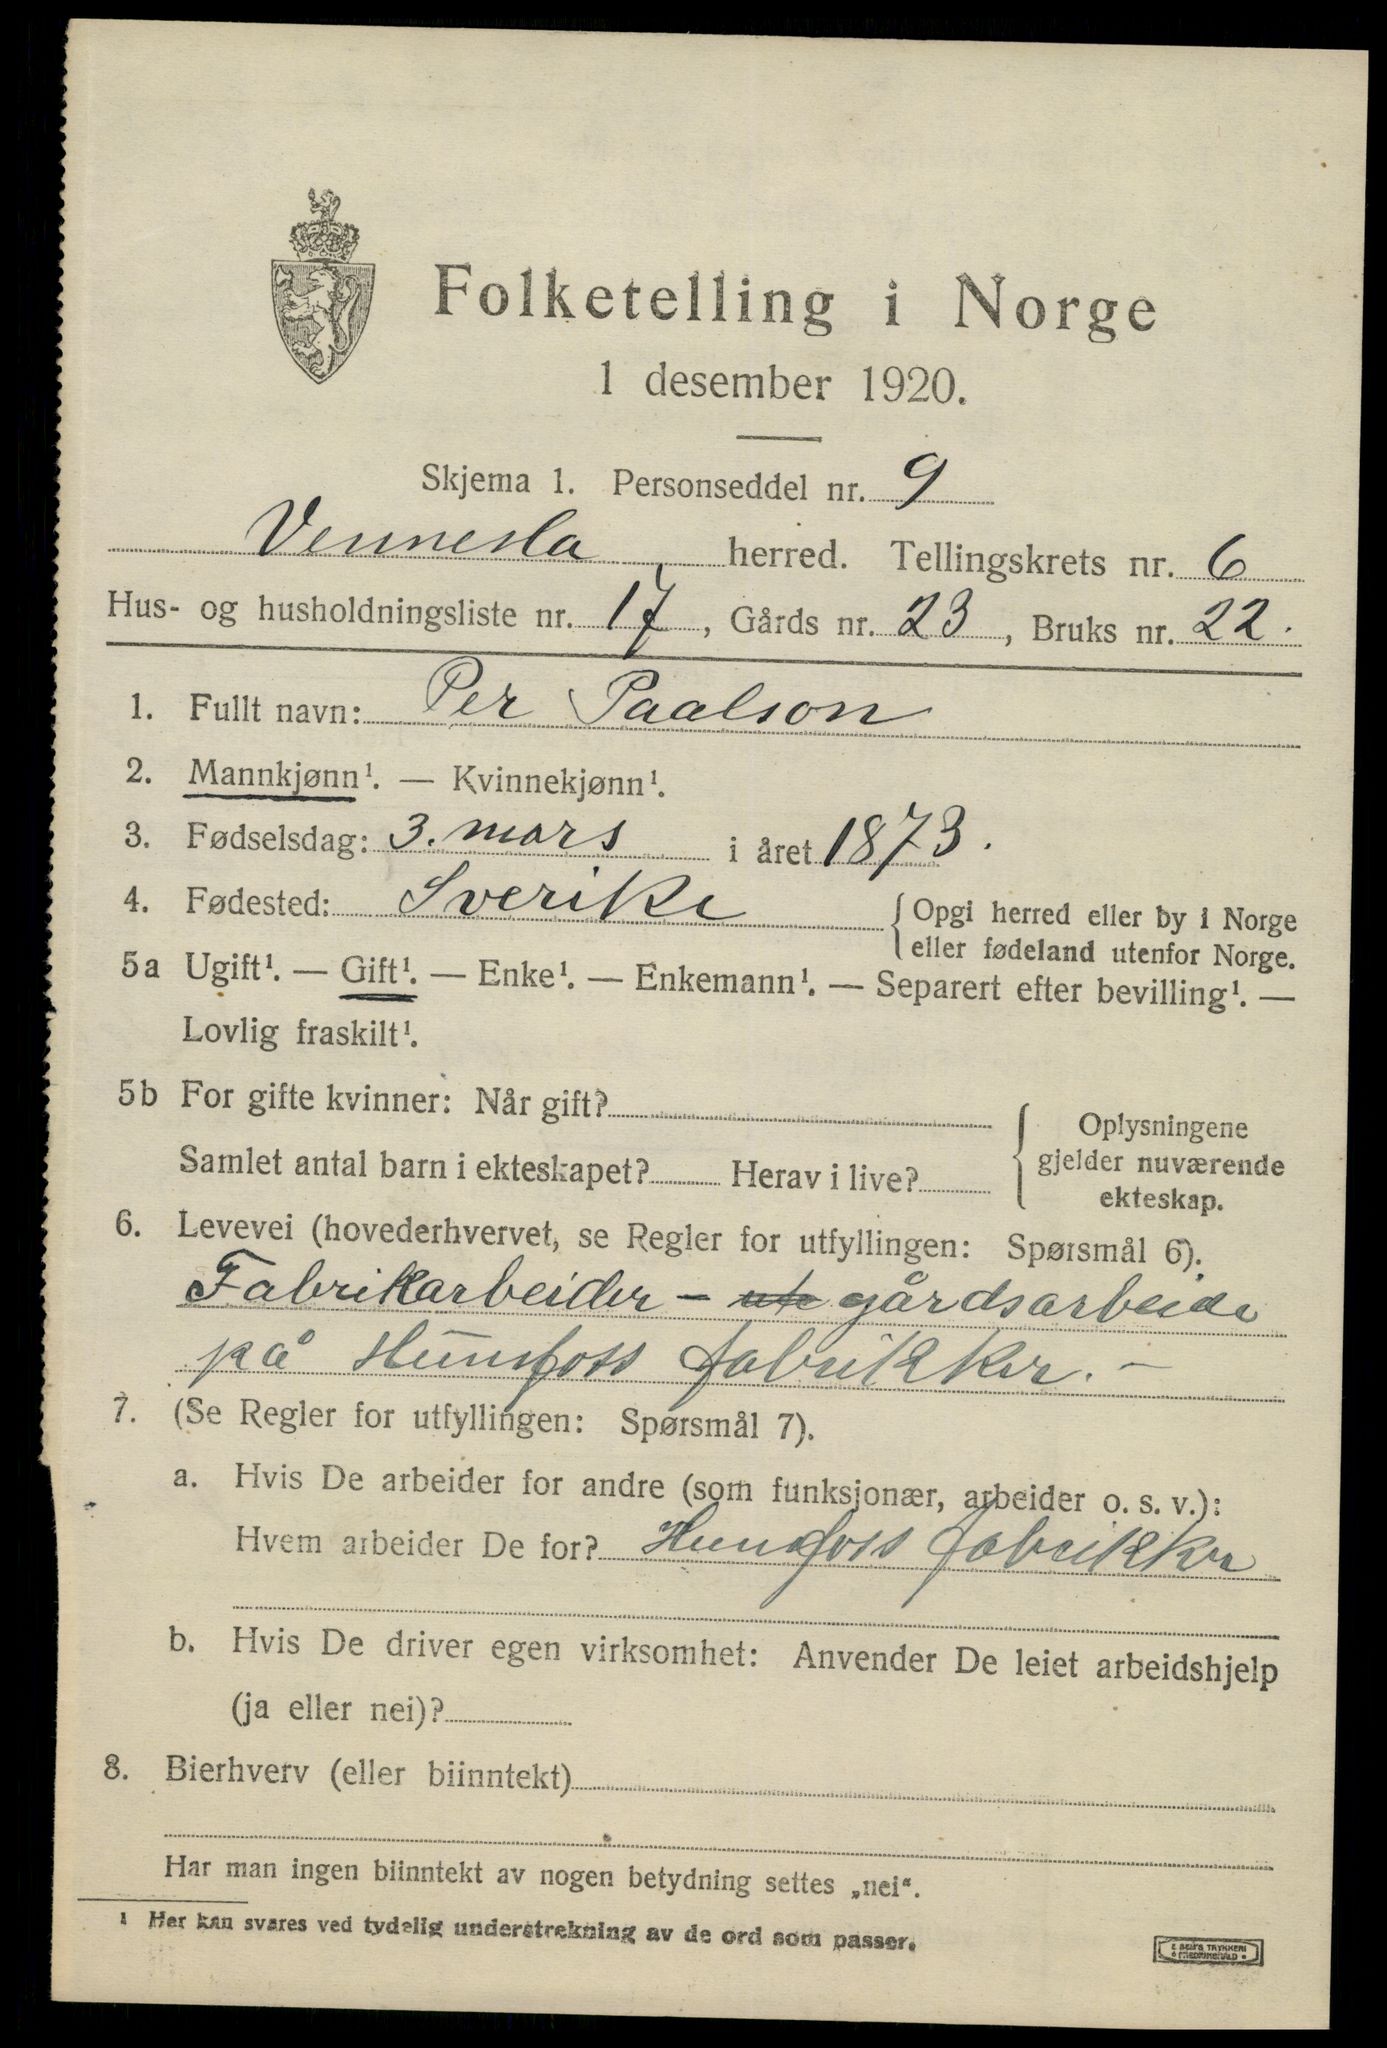 Folketelling i Norge
1 desember 1920.
Skjema 1. Personseddel nr. 9
Vennesla herred. Tellingskrets nr. 6
Hus- og husholdningsliste nr. 17, Gårds nr. 23, Bruks nr. 22.
1. Fullt navn: Per Paalson
2. Mannkjønn¹. — Kvinnekjønn¹.
3. Fødselsdag: 3. mars i året 1873.
4. Fødested: Sverike { Opgi herred eller by i Norge
eller fødeland utenfor Norge.
5a Ugift¹. — Gift¹. — Enke¹. — Enkemann¹. — Separert efter bevilling¹. —
Lovlig fraskilt¹.
5b For gifte kvinner: Når gift?
Samlet antal barn i ekteskapet? Herav i live?
{ Oplysningene
gjelder nuværende
ekteskap.
6. Levevei (hovederhvervet, se Regler for utfyllingen: Spørsmål 6).
Fabrikarbeider - ute gårdsarbeide
på Hunsfoss fabrikker. —
7. (Se Regler for utfyllingen: Spørsmål 7).
a. Hvis De arbeider for andre (som funksjonær, arbeider o. s. v.):
Hvem arbeider De for? Hunsfoss fabrikker
b. Hvis De driver egen virksomhet: Anvender De leiet arbeidshjelp
(ja eller nei)?
8. Bierhverv (eller biinntekt)
Har man ingen biinntekt av nogen betydning settes „nei“.
¹ Her kan svares ved tydelig understrekning av de ord som passer.
E. SEM'S TRYKKERI
FREDRIKSHALD